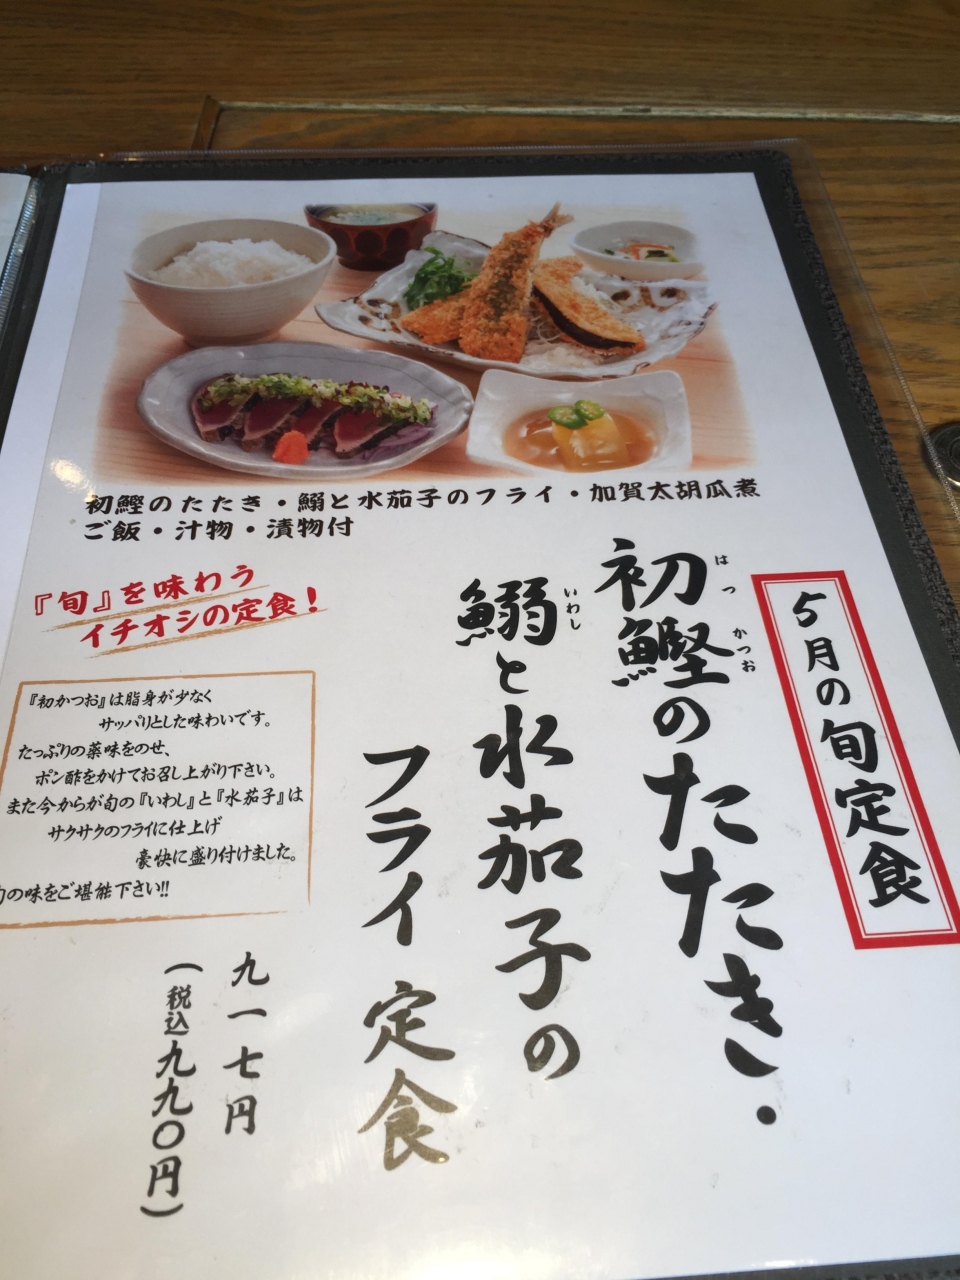 初鰹のたたき・鰯と水茄子のフライ・加賀太胡瓜煮
ご飯・汁物・漬物付
5月の旬定食
初鰹のたたき・
はつ
かつお
鰯と水茄子の
いわし
フライ定食
『旬』を味わう
イチオシの定食!
『初かつお』は脂身が少なく
サッパリとした味わいです。
たっぷりの薬味をのせ、
ポン酢をかけてお召し上がり下さい。
また今からが旬の『いわし』と『水茄子』は
サクサクのフライに仕上げ
豪快に盛り付けました。
の味をご堪能下さい!!
九一七円
(税込九九〇円)